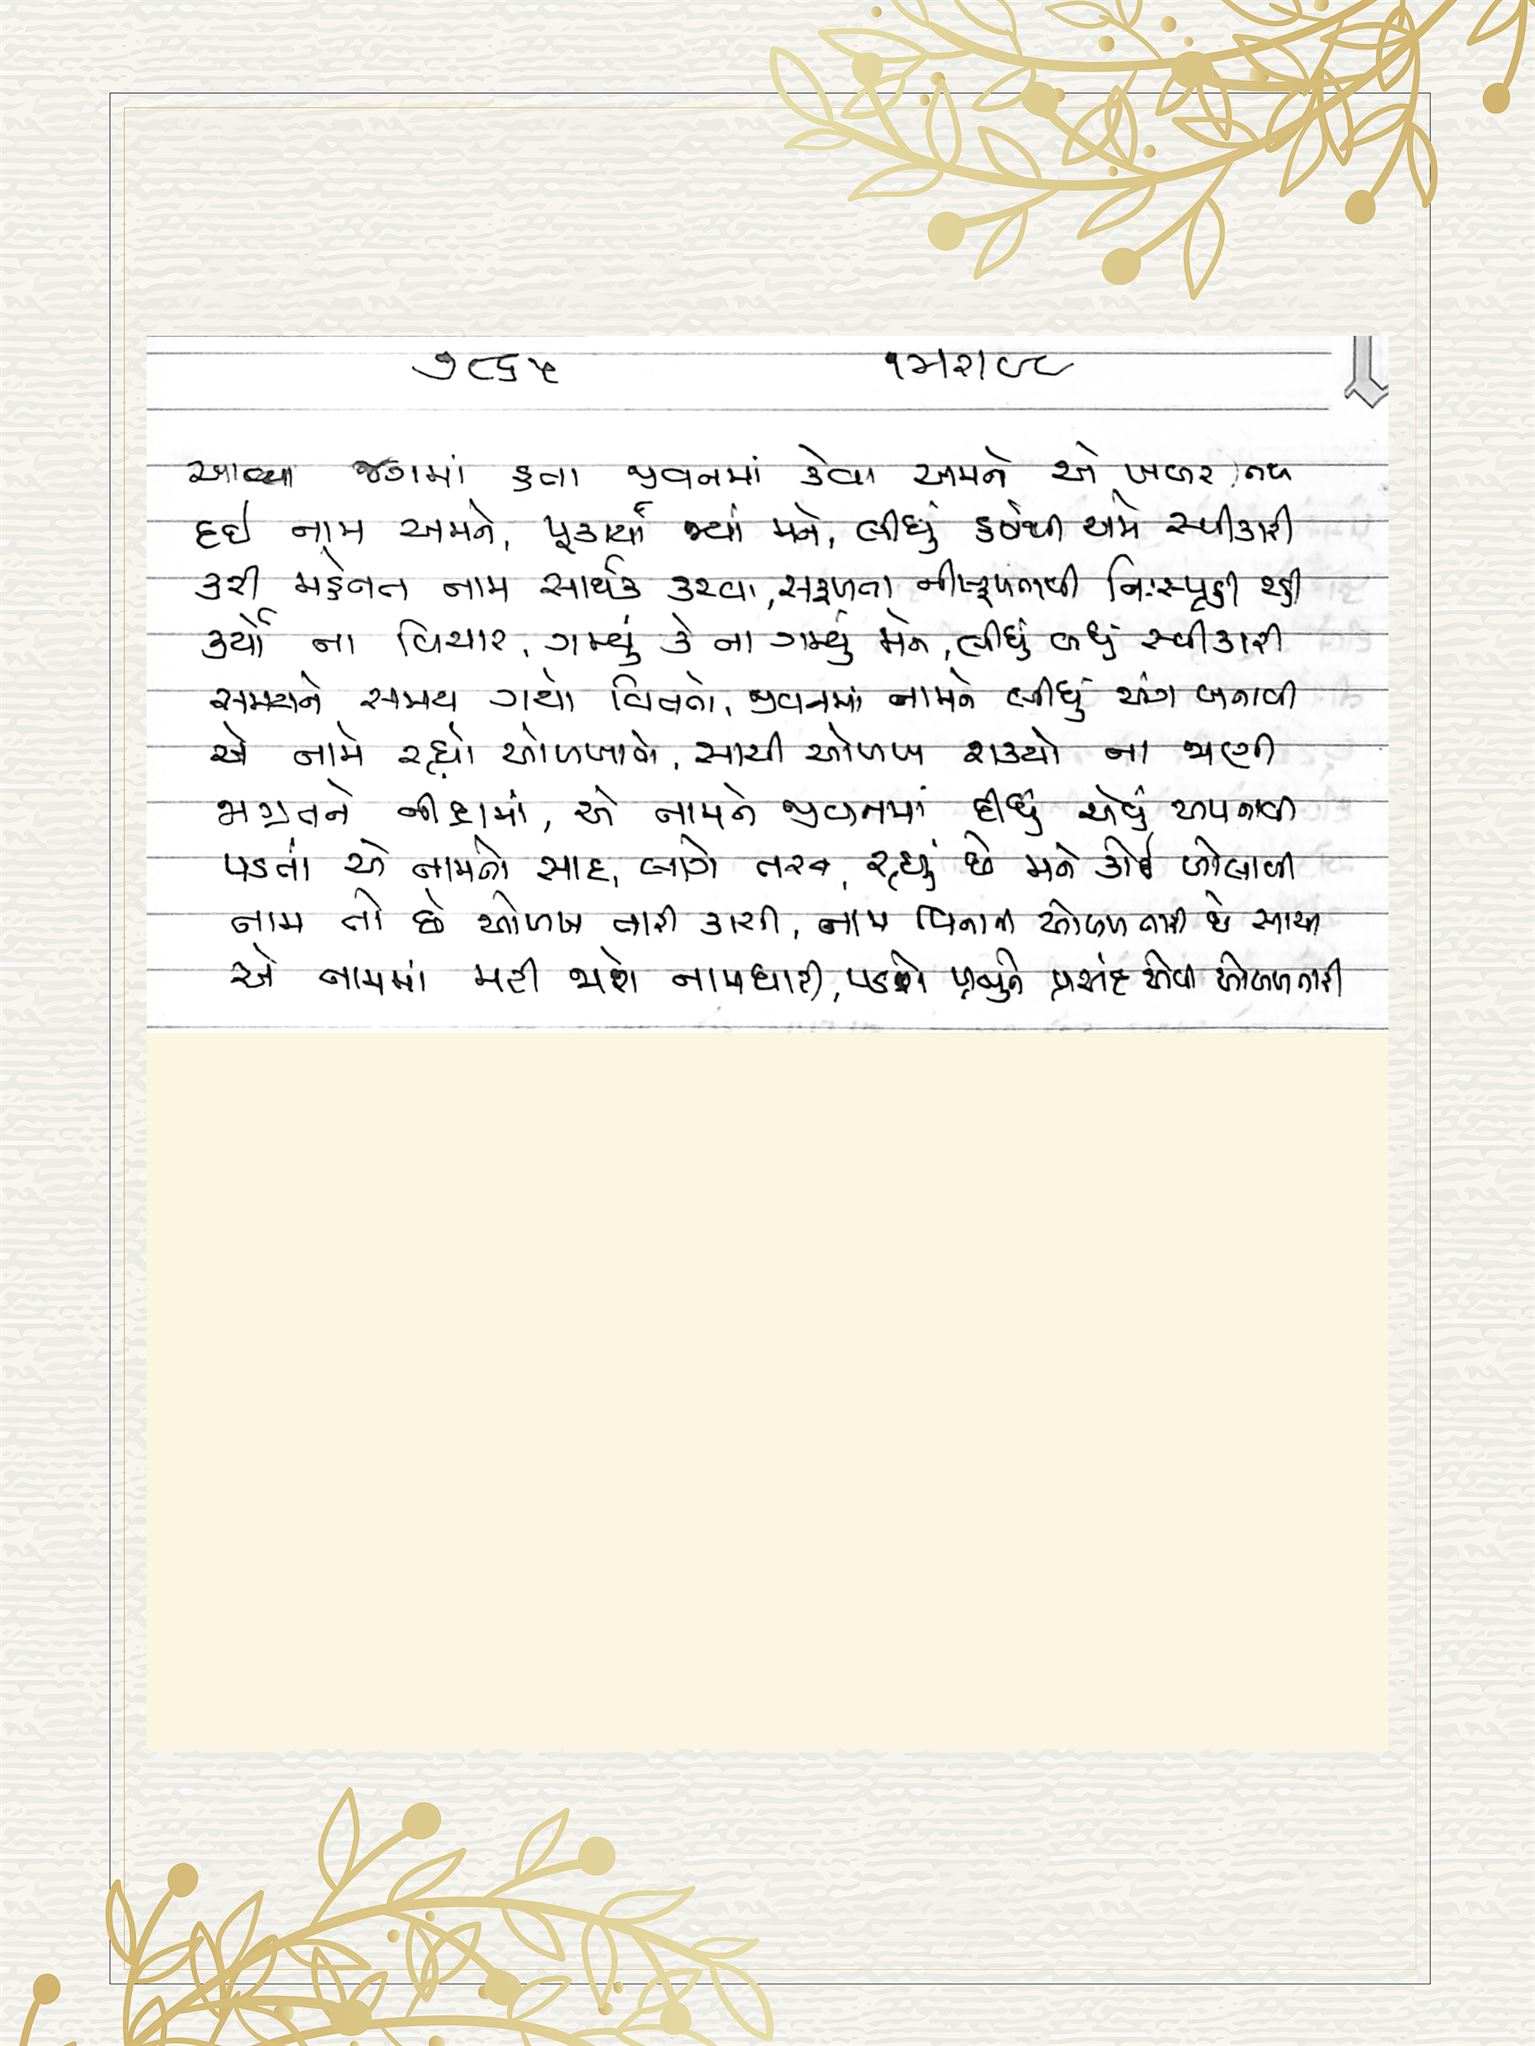 ૭૮૬૫
આવ્યા જગમાં હતા જીવનમાં કેવા અમને એ ખબર નથી
દઈ નામ અમને, પૂકાર્યા જ્યાં મને, લીધું હર્ષથી અમે સ્વીકારી
કરી મહેનત નામ સાર્થક કરવા, સફળતા નીષ્ફળતાથી નિઃસ્પૃહી રહી
કર્યો ના વિચાર, ગમ્યું કે ના ગમ્યું મને, લીધું બધું સ્વીકારી
સમયને સમય ગયો વિતતો, જીવનમાં નામને લીધું અંગ બનાવી
એ નામે રહ્યો ઓળખાતો, સાચી ઓળખ શક્યો ના જાણી
જાગ્રતને નીદ્રામાં, એ નામને જીવનમાં દીધું એવું અપનાવી
પડતાં એ નામનો સાદ, લાગે તરત, રહ્યું છે મને કોઈ બોલાવી
નામ તો છે ઓળખ તારી કાચી, નામ વિનાની ઓળખ તારી છે સાચી
એ નામમાં મટી જાશે નામધારી, પડશે પ્રભુને પસંદ એવી ઓળખ તારી